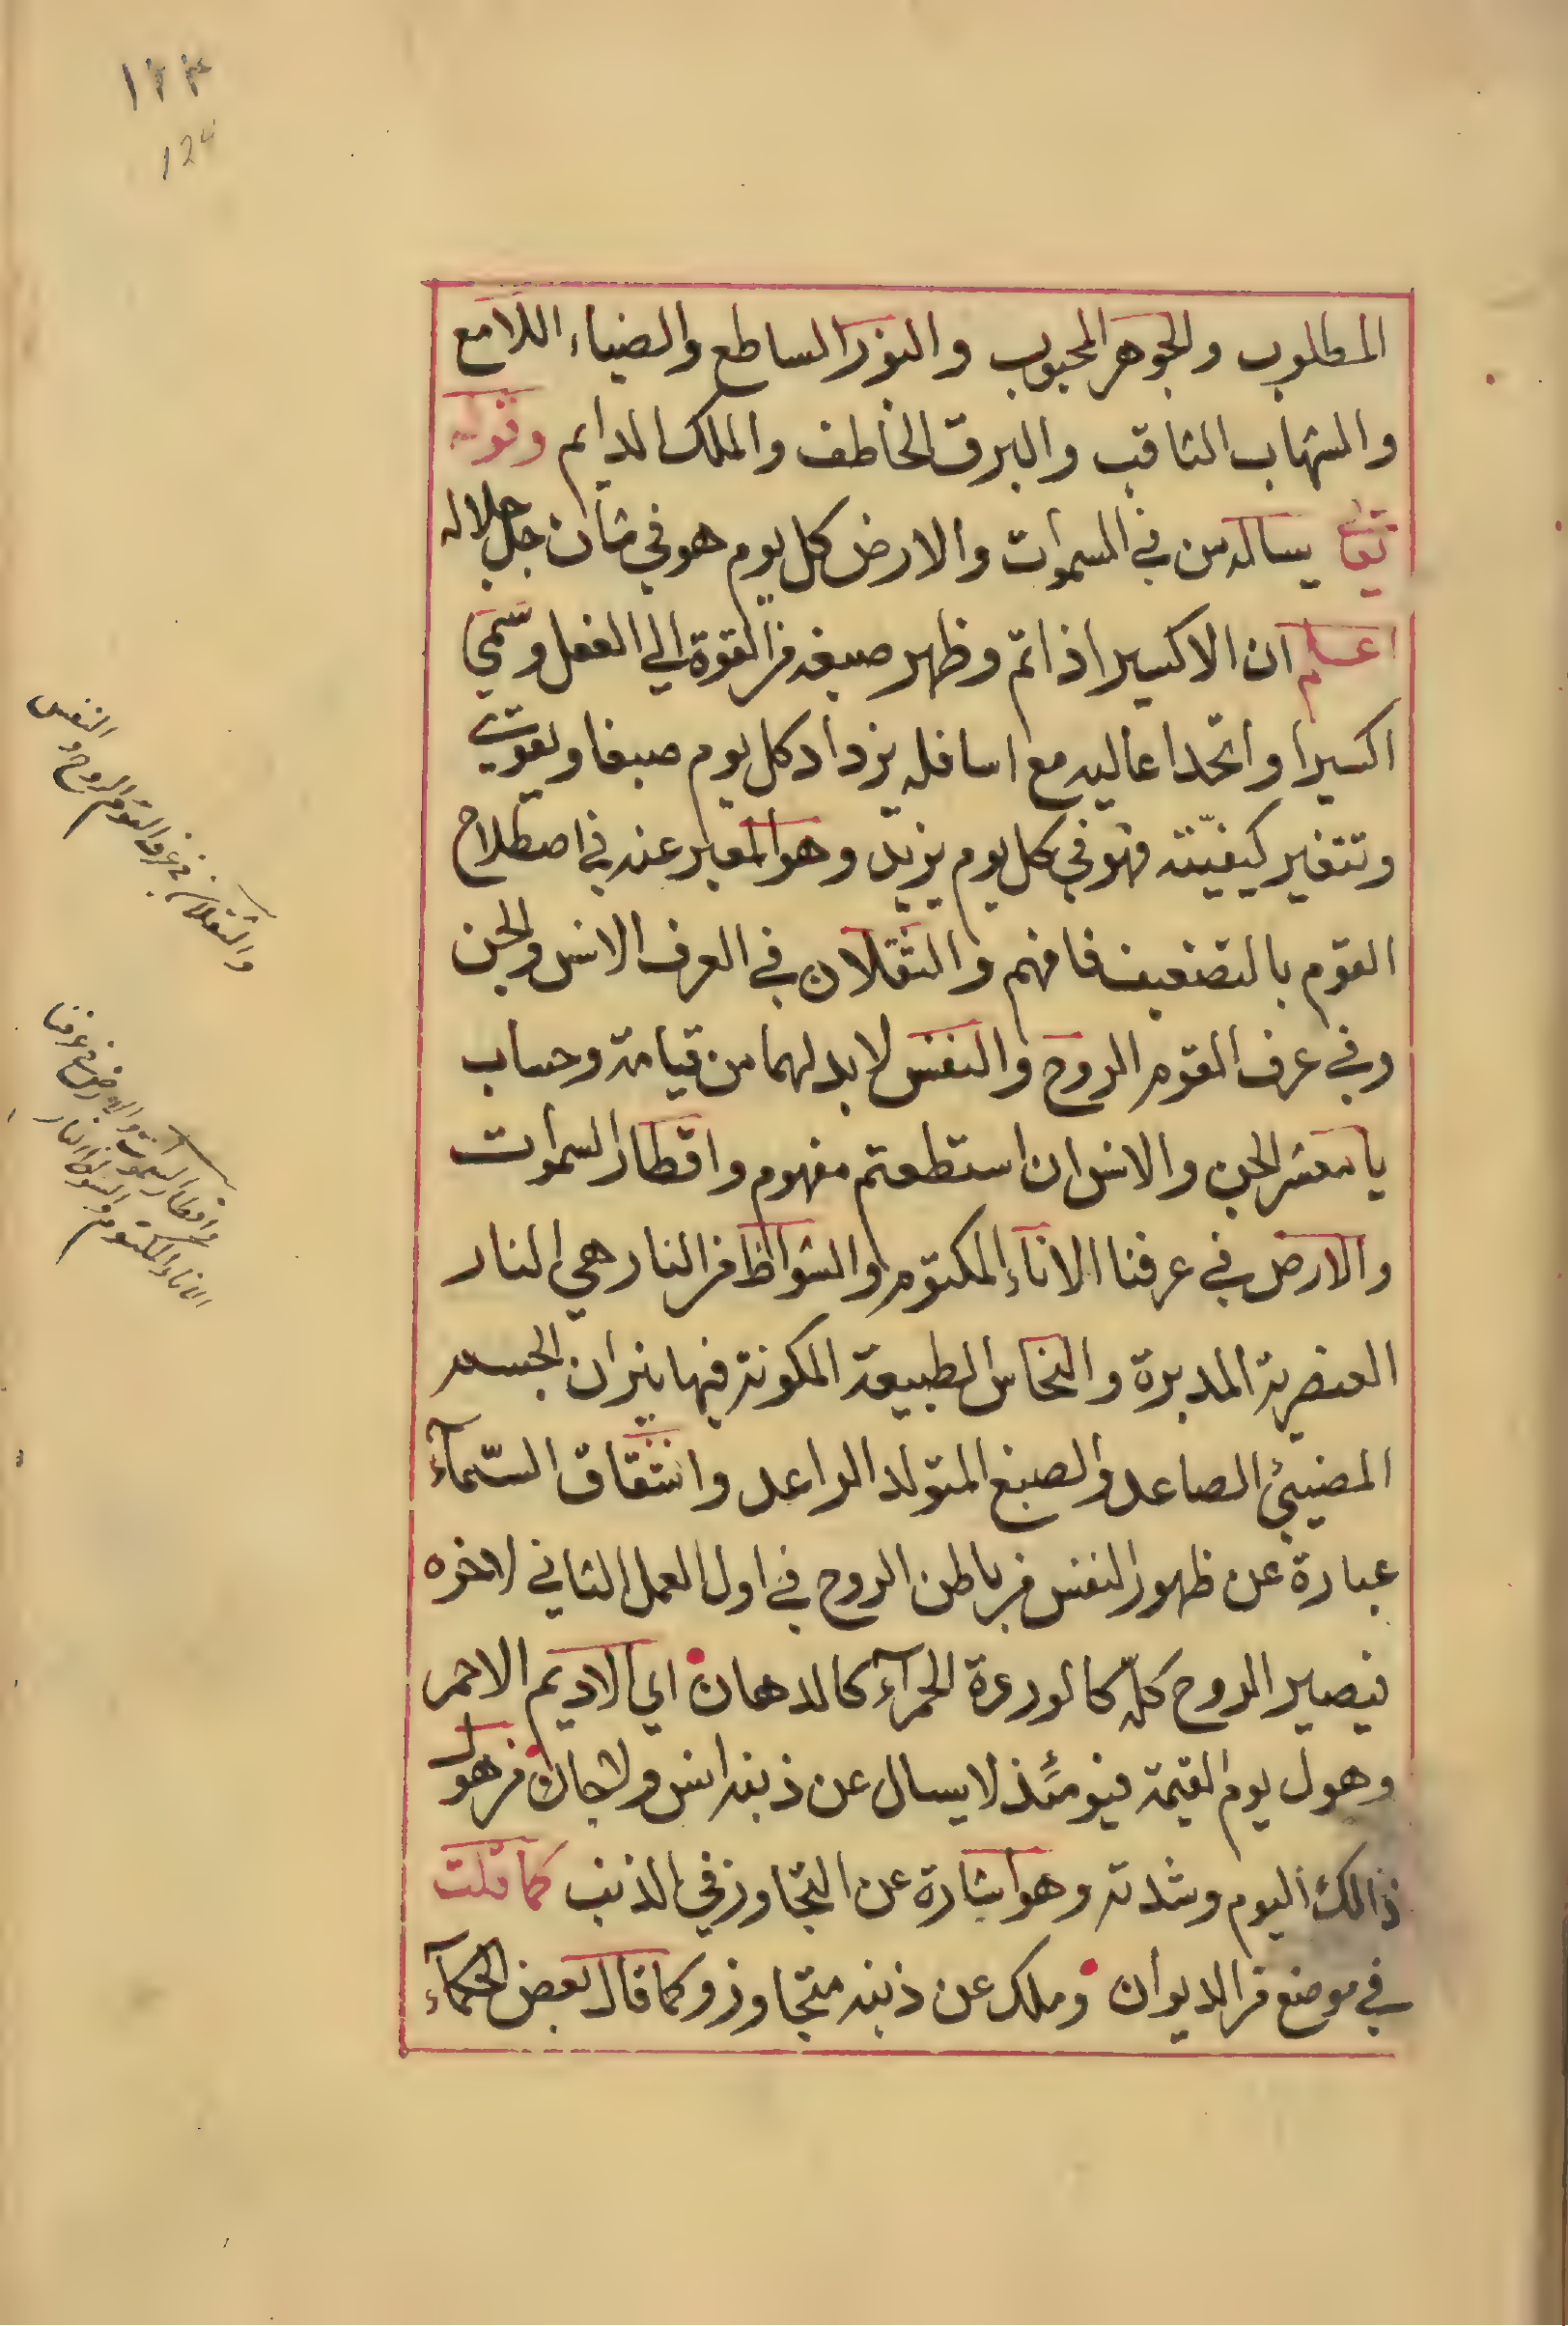 ١٢٤
124
المطلوب والجوهر المحبوب والنور الساطع والضياء اللامع
والشهاب الثاقب والبرق الخاطف والملك الدايم وقوله
تعالى يساله من في السموات والارض كل يوم هو في شان جل جلاله
اعلم ان الاكسير اذا تم وظهر صبغه من القوة الي الفعل وسمي
اكسيرا واتحد اعاليه مع اسافله يزداد كل يوم صبغا ويقوي
وتتغير كيفيته فهو في كل يوم يزيد وهو المعبر عنه في اصطلاح
القوم بالتضعيف فافهم والثقلان في العرف الانس والجن
وفي عرف القوم الروح والنفس لا بد لهما من قيامة وحساب
يا معشر الجن والانس ان استطعتم مفهوم واقطار السموات
والارض في عرفنا الاناء المكتوم والشواظ من النار هي النار
العنصرية المدبرة والنحاس الطبيعة المكونة فيها نيران الجسد
المضيئ الصاعد والصبغ المتولد الراعد وانشقاق السّمآء
عبارة عن ظهور النفس من باطن الروح في اول العمل الثاني لاخره
فيصير الروح كلّه كالوردة الحمرآء كالدهان اي الاديم الاحمر
وهول يوم القيمة فيومئذ لا يسال عن ذنبه انس ولا جان من هول
ذالك اليوم وشدته وهو اشارة عن التجاوز في الذنب كما قلت
في موضع من الديوان وملك عن ذنبه متجاوز وكما قال بعض الحكمآء
والثقلان في عرف القوم الروح والنفس
واقطار السموت والارض في عرفنا
الاناء المكتوم والشواظ النار